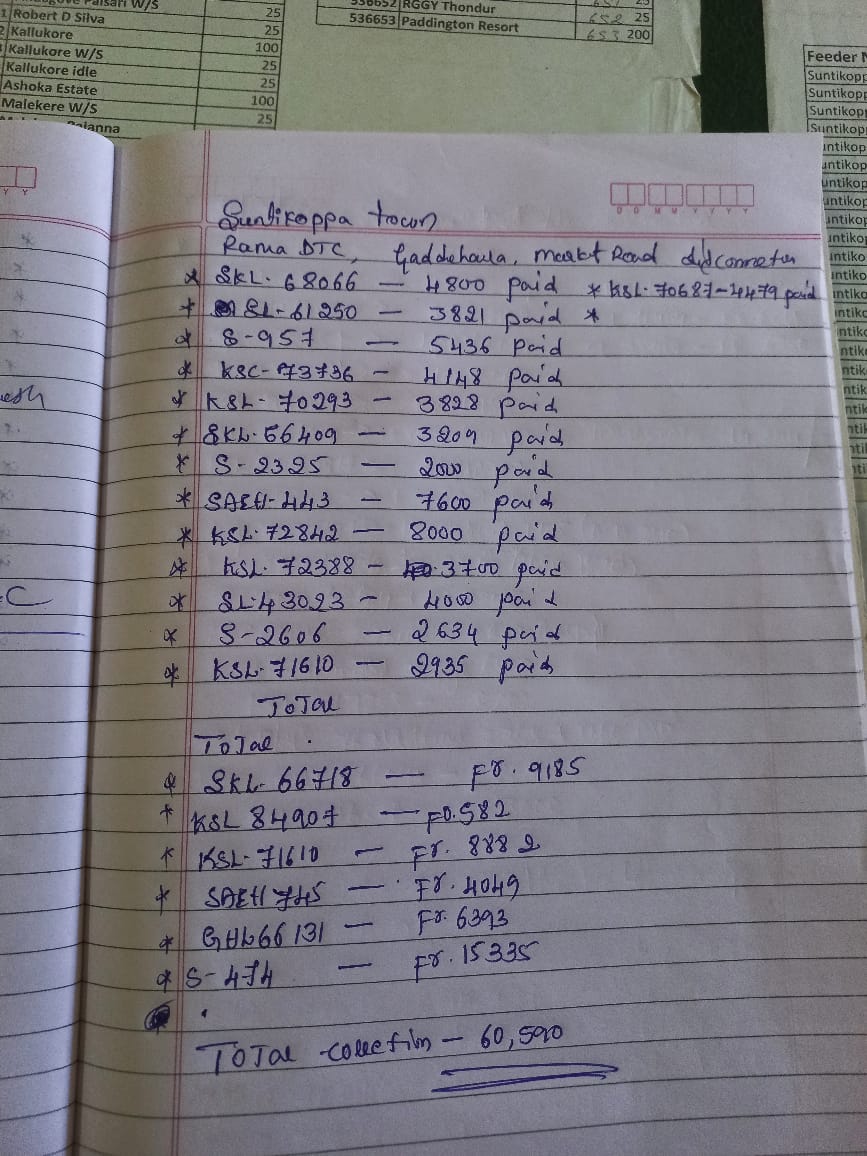 Robert D Silva 25
Kallukore 25
Kallukore W/S 100
Kallukore idle 25
Ashoka Estate 25
Malekere W/S 100
25
536652 RGGY Thondur 652 25
536653 Paddington Resort 653 200
Feeder
Suntikopp
Suntikopp
Suntikopp
Suntikop
D D M M Y Y Y Y
Suntikoppa town
Rama DTC, Gaddehaula, Market Road disconnetin
* SKL. 68066 — 4800 paid * KSL. 70687-4479 paid
* SL-61250 — 3821 paid *
* S-957 — 5436 paid
* KSC-73736 - 4148 paid
* KSL-70293 - 3828 paid
* SKL.56409 — 3209 paid
* S-2325 — 2000 paid
* SAEH-443 - 7600 paid
* KSL.72842 — 8000 paid
* KSL. 72388 - 3700 paid
* SL.43023 - 4000 paid
* S-2606 — 2634 paid
* KSL.71610 — 2935 paid
Total
Total .
* SKL-66718 — Fr. 9185
* KSL 84907 — Fr.582
* KSL-71610 — Fr. 8882
* SAEH 745 — Fr. 4049
* GHL66131 — Fr. 6393
* S-474 — Fr. 15335
Total collectim — 60,590